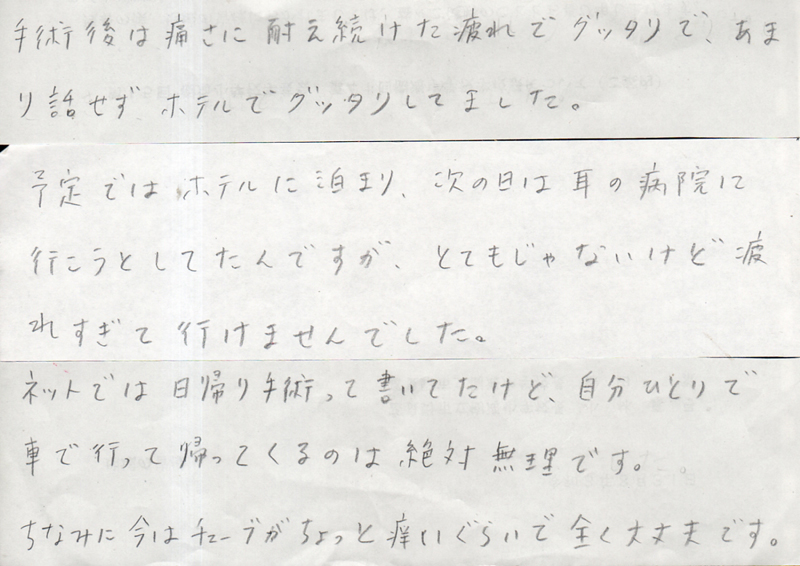 手術後は痛さに耐え続けた疲れでグッタリで、あま
り話せずホテルでグッタリしてました。
予定ではホテルに泊まり、次の日は耳の病院に
行こうとしてたんですが、とてもじゃないけど疲
れすぎて行けませんでした。
ネットでは日帰り手術って書いてたけど、自分ひとりで
車で行って帰ってくるのは絶対無理です。
ちなみに今はチューブがちょっと痒いぐらいで全く大丈夫です。